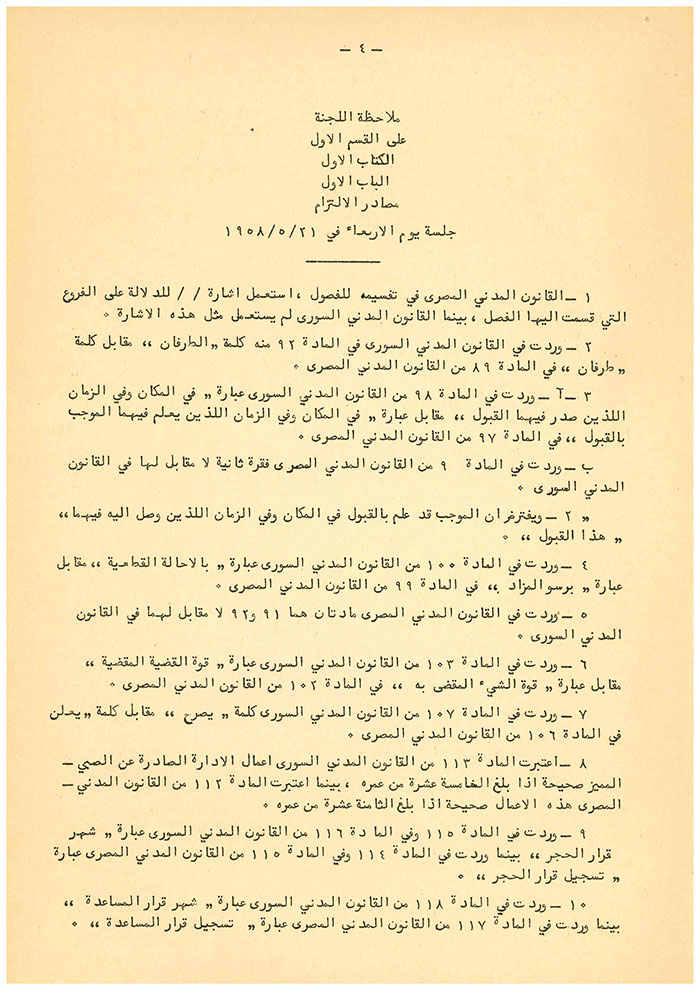 — ٤ —
ملاحظة اللجنة
على القسم الاول
الكتاب الاول
الباب الاول
مصادر الالتزام
جلسة يوم الاربعاء في ١٩٥٨/٥/٢١
١ – القانون المدني المصرى في تقسيمه للفصول ، استعمل اشارة / / للدلالة على الفروع
التي قسمت اليها الفصل ، بينما القانون المدني السورى لم يستعمل مثل هذه الاشارة ٠
٢ – وردت في القانون المدني السورى في المادة ٩٢ منه كلمة „ الطرفان „ مقابل كلمة
„ طرفان „ في المادة ٨٩ من القانون المدني المصرى ٠
٣ – آ – وردت في المادة ٩٨ من القانون المدني السورى عبارة „ في المكان وفي الزمان
اللذين صدر فيهما القبول „ مقابل عبارة „ في المكان وفي الزمان اللذين يعلم فيهما الموجب
بالقبول „ في المادة ٩٧ من القانون المدني المصرى ٠
ب – وردت في المادة ٩ من القانون المدني المصرى فقرة ثانية لا مقابل لها في القانون
المدني السورى ٠
„ ٢ – ويفترض ان الموجب قد علم بالقبول في المكان وفي الزمان اللذين وصل اليه فيهما „
„ هذا القبول „ ٠
٤ – وردت في المادة ١٠٠ من القانون المدني السورى عبارة „ بالاحالة القطعية „ مقابل
عبارة „ برسو المزاد „ في المادة ٩٩ من القانون المدني المصرى ٠
٥ – وردت في القانون المدني المصرى مادتان هما ٩١ و٩٢ لا مقابل لهما في القانون
المدني السورى ٠
٦ – وردت في المادة ١٠٣ من القانون المدني السورى عبارة „ قوة القضية المقضية „
مقابل عبارة „ قوة الشيء المقضى به „ في المادة ١٠٢ من القانون المدني المصرى ٠
٧ – وردت في المادة ١٠٧ من القانون المدني السورى كلمة „ يصرح „ مقابل كلمة „ يعلن
في المادة ١٠٦ من القانون المدني المصرى ٠
٨ – اعتبرت المادة ١١٣ من القانون المدني السورى اعمال الادارة الصادرة عن الصبي –
المميز صحيحة اذا بلغ الخامسة عشرة من عمره ، بينما اعتبرت المادة ١١٢ من القانون المدني –
المصرى هذه الاعمال صحيحة اذا بلغ الثامنة عشرة من عمره ٠
٩ – وردت في المادة ١١٥ وفي المادة ١١٦ من القانون المدني السورى عبارة „ شهر
قرار الحجر „ بينما وردت في المادة ١١٤ وفي المادة ١١٥ من القانون المدني المصرى عبارة
„ تسجيل قرار الحجر „ ٠
١٠ – وردت في المادة ١١٨ من القانون المدني السورى عبارة „ شهر قرار المساعدة „
بينما وردت في المادة ١١٧ من القانون المدني المصرى عبارة „ تسجيل قرار المساعدة „ ٠